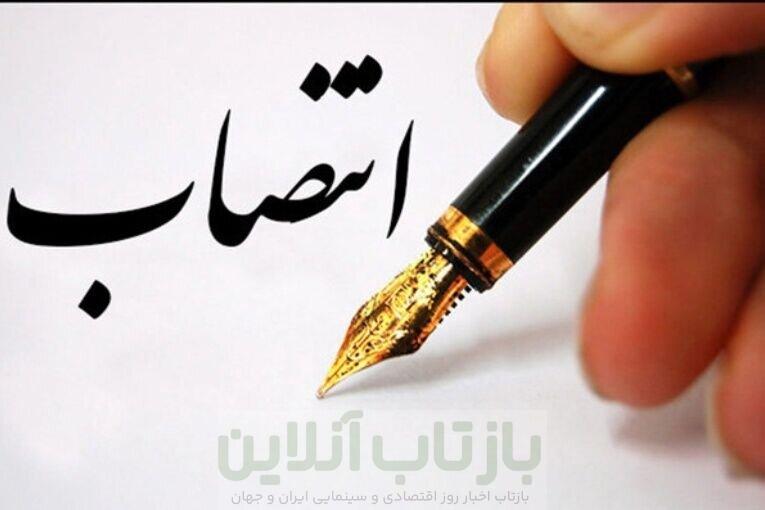 انتصاب
بازتاب آنلاین
بازتاب اخبار روز اقتصادی و سینمایی ایران و جهان